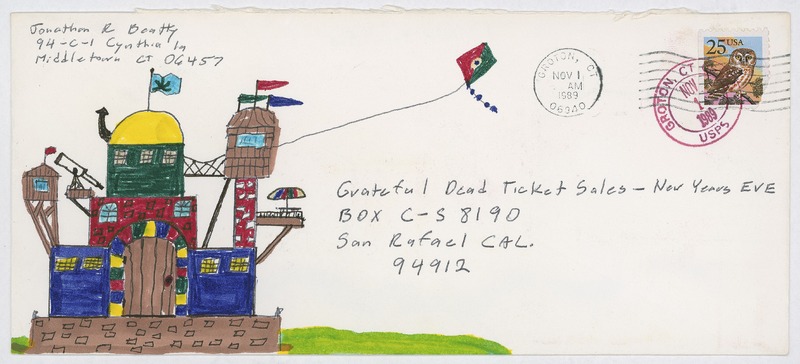 Jonathan R Beatty
94-C-1 Cynthia ln
Middletown CT 06457
GROTON, CT
NOV 1
AM
1989
06340
25 USA
GROTON, CT
NOV
1
1989
USPS
Grateful Dead Ticket Sales - New Years EVE
BOX C-S 8190
San Rafael CAL.
94912